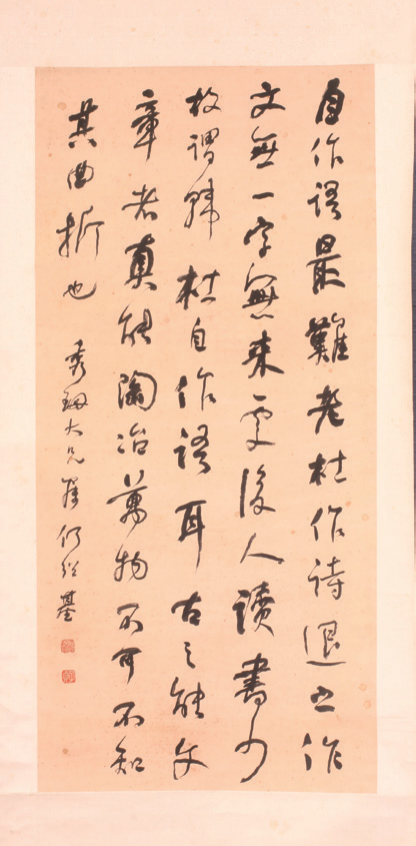 自作語最難老杜作詩退之作
文無一字無來處後人讀書少
故謂韓杜自作語耳古之能文
章者真能陶冶萬物不可不知
其曲折也
秀 大兄 何紹基